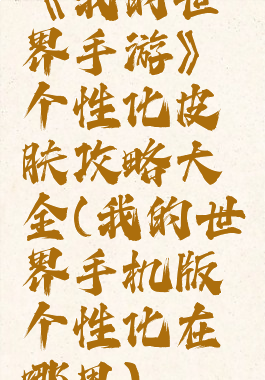 《我的世
界手游》
个性化皮
肤攻略大
全(我的世
界手机版
个性化在
哪里)